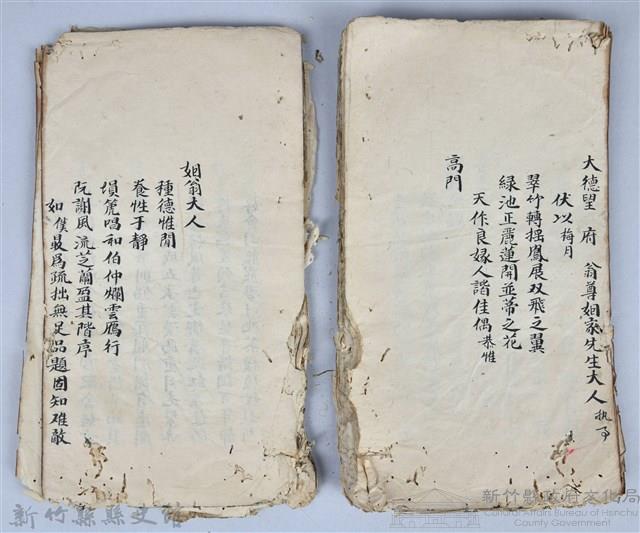 大德望 府 翁尊姻家先生大人 執事
伏以 梅月
翠竹轉摇鳳展双飛之翼
綠池正麗蓮開並蒂之花
天作良緣人諧佳偶 恭惟
高門
姻翁大人
種德惟閒
養性于静
塤箎唱和伯仲爛雲鴈行
阮謝風流芝蘭盈其階序
如僕最爲疏拙無足品題固知难敵
新竹縣縣史館
新竹縣政府文化局
Cultural Affairs Bureau of Hsinchu
County Government